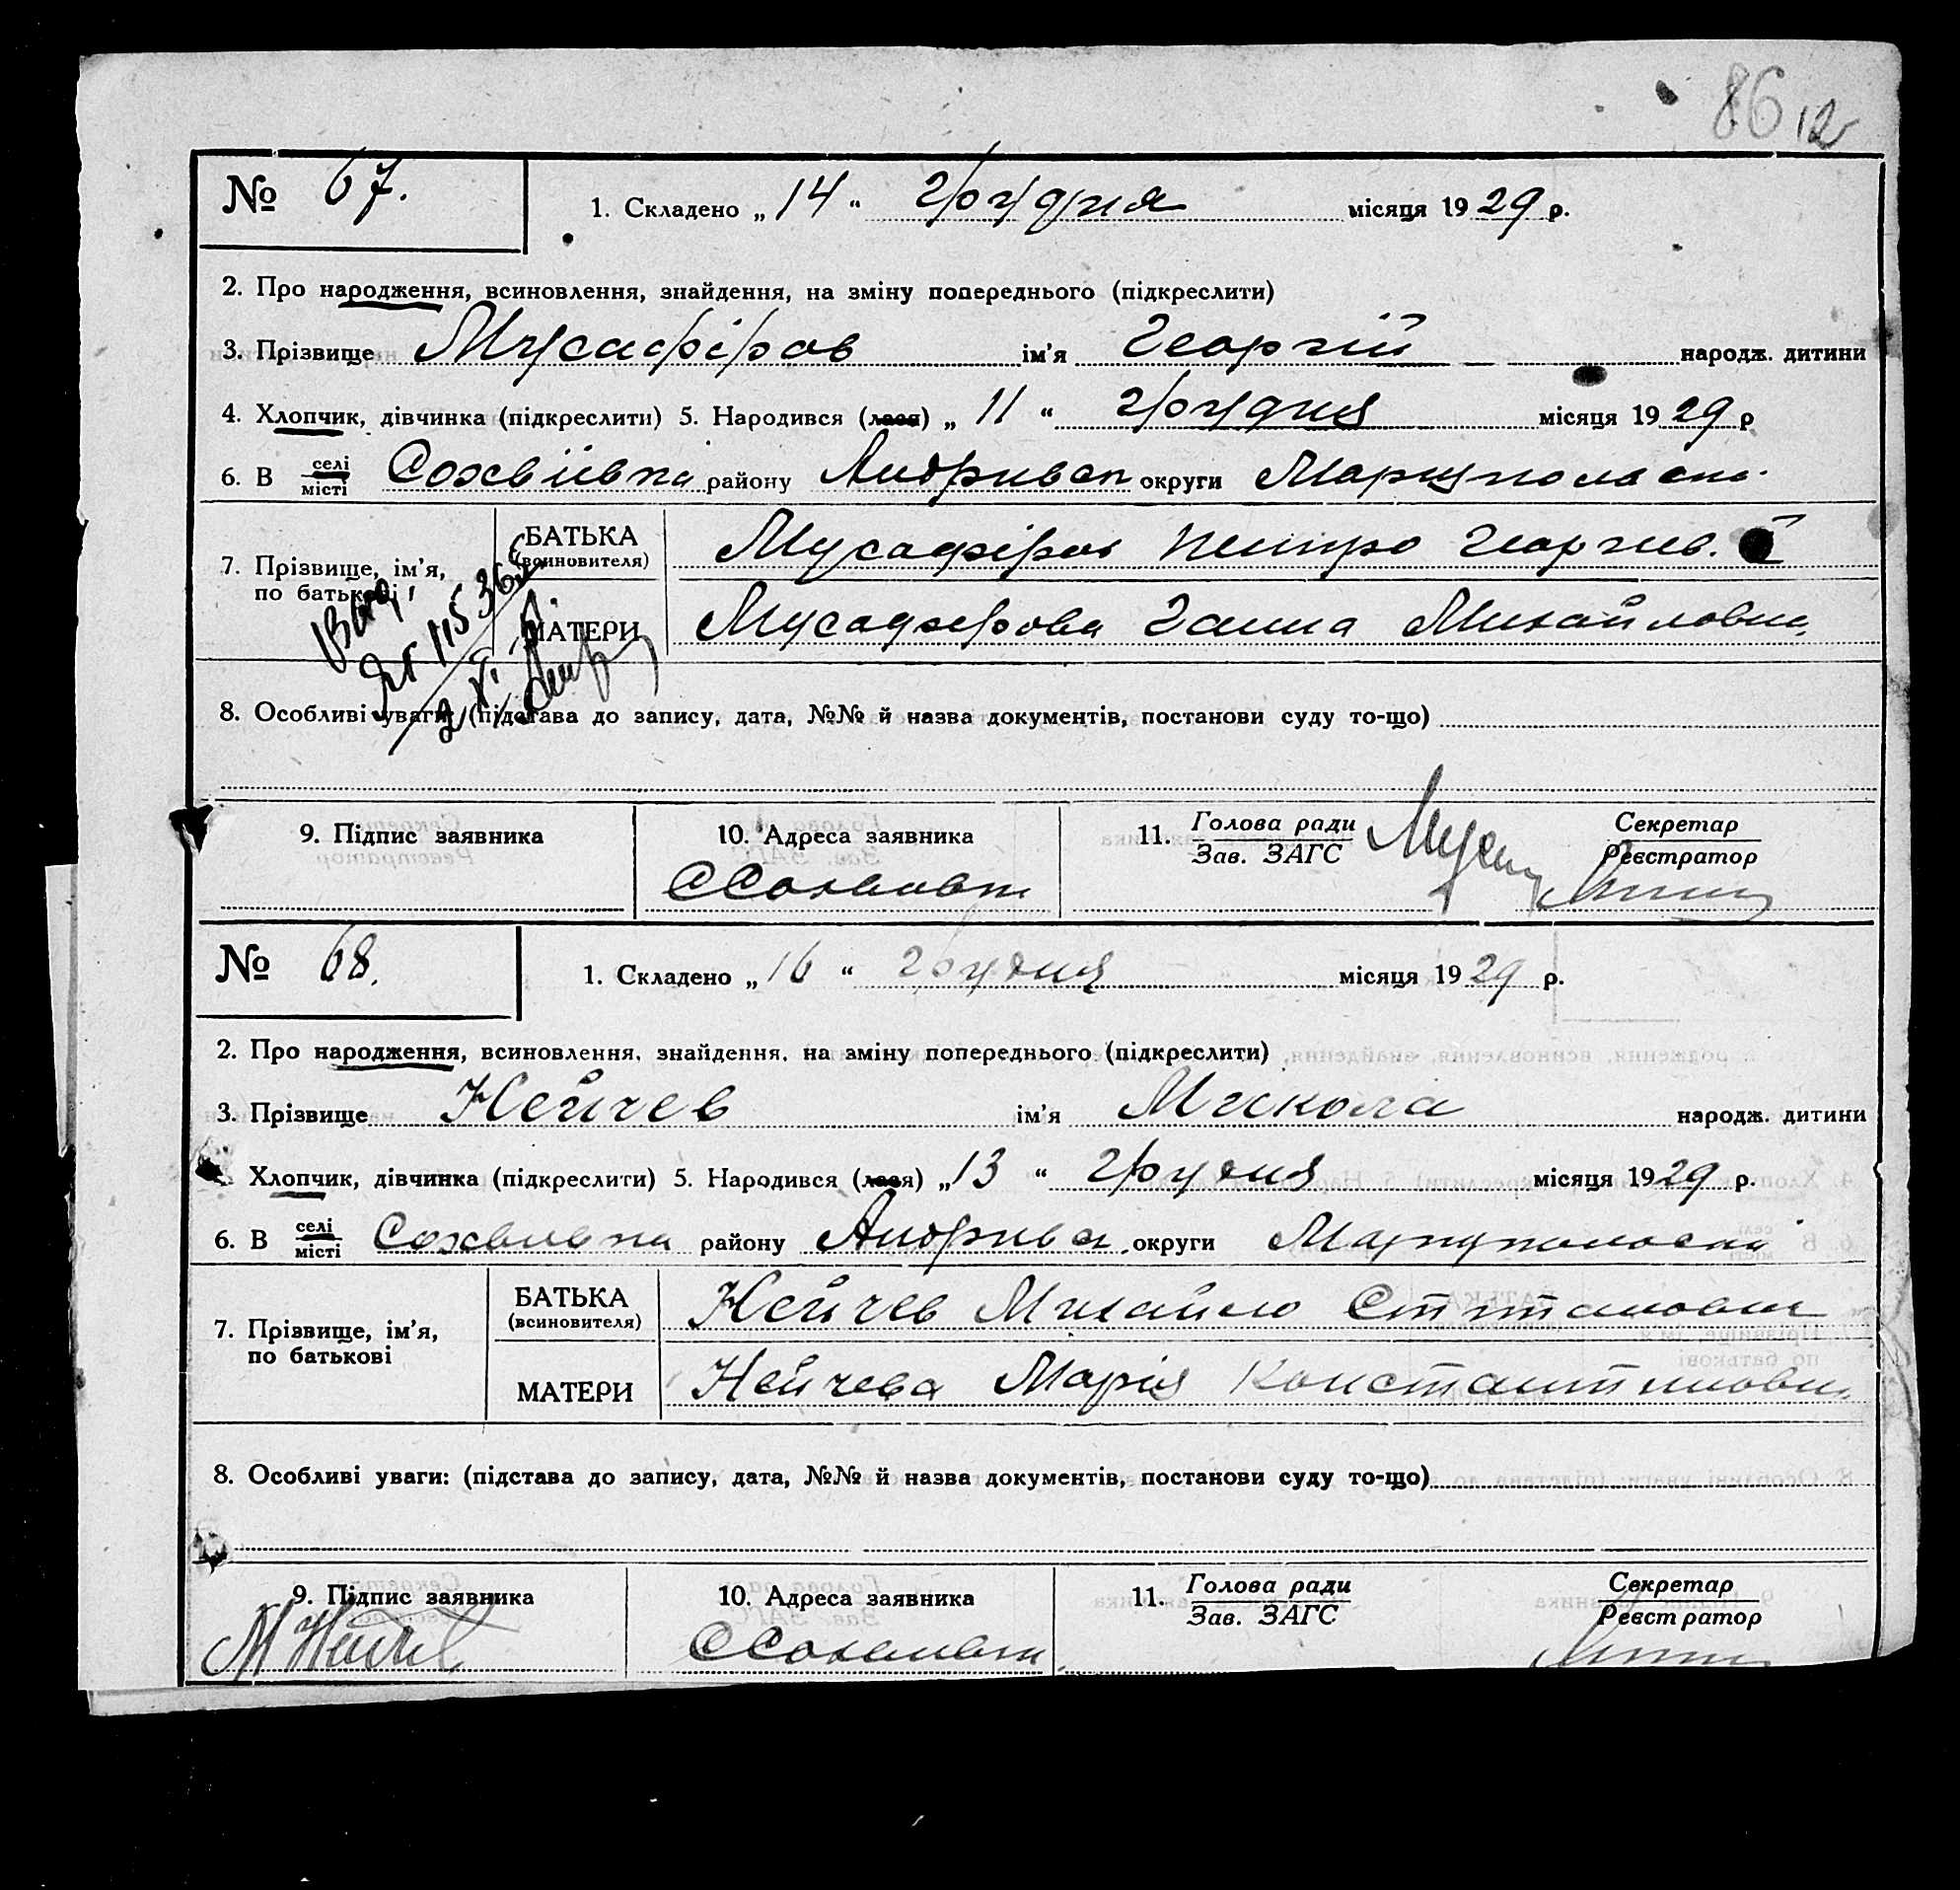 86 12
№ 67. 1. Складено „14“ грудня місяця 1929 р.
2. Про народження, всиновлення, знайдення, на зміну попереднього (підкреслити)
3. Прізвище Мусафіров ім'я Георгій народж. дитини
4. Хлопчик, дівчинка (підкреслити) 5. Народився (лася) „11“ грудня місяця 1929 р
6. В селі Сохвіівка району Андривсп округи
місті
БАТЬКА Мусафіров Петро Георгиев.
7. Прізвище, ім'я, (всиновителя)
по батькові
МАТЕРИ Мусафірова Ганна Михайловна
8. Особливі уваги: (підстава до запису, дата, №№ й назва документів, постанови суду то-що)
9. Підпис заявника 10. Адреса заявника 11. Голова ради Секретар
Зав. ЗАГС Реєстратор
№ 68. 1. Складено „16“ грудня місяця 1929 р.
2. Про народження, всиновлення, знайдення, на зміну попереднього (підкреслити)
3. Прізвище Нейчев ім'я Микола народж. дитини
Хлопчик, дівчинка (підкреслити) 5. Народився (лася) „13“ грудня місяця 1929 р.
6. В селі Сохвиевка району округи
місті
БАТЬКА Нейчев Михайло
7. Прізвище, ім'я, (всиновителя)
по батькові
МАТЕРИ Нейчева Марія Константиновна
8. Особливі уваги: (підстава до запису, дата, №№ й назва документів, постанови суду то-що)
9. Підпис заявника 10. Адреса заявника 11. Голова ради Секретар
Зав. ЗАГС Реєстратор